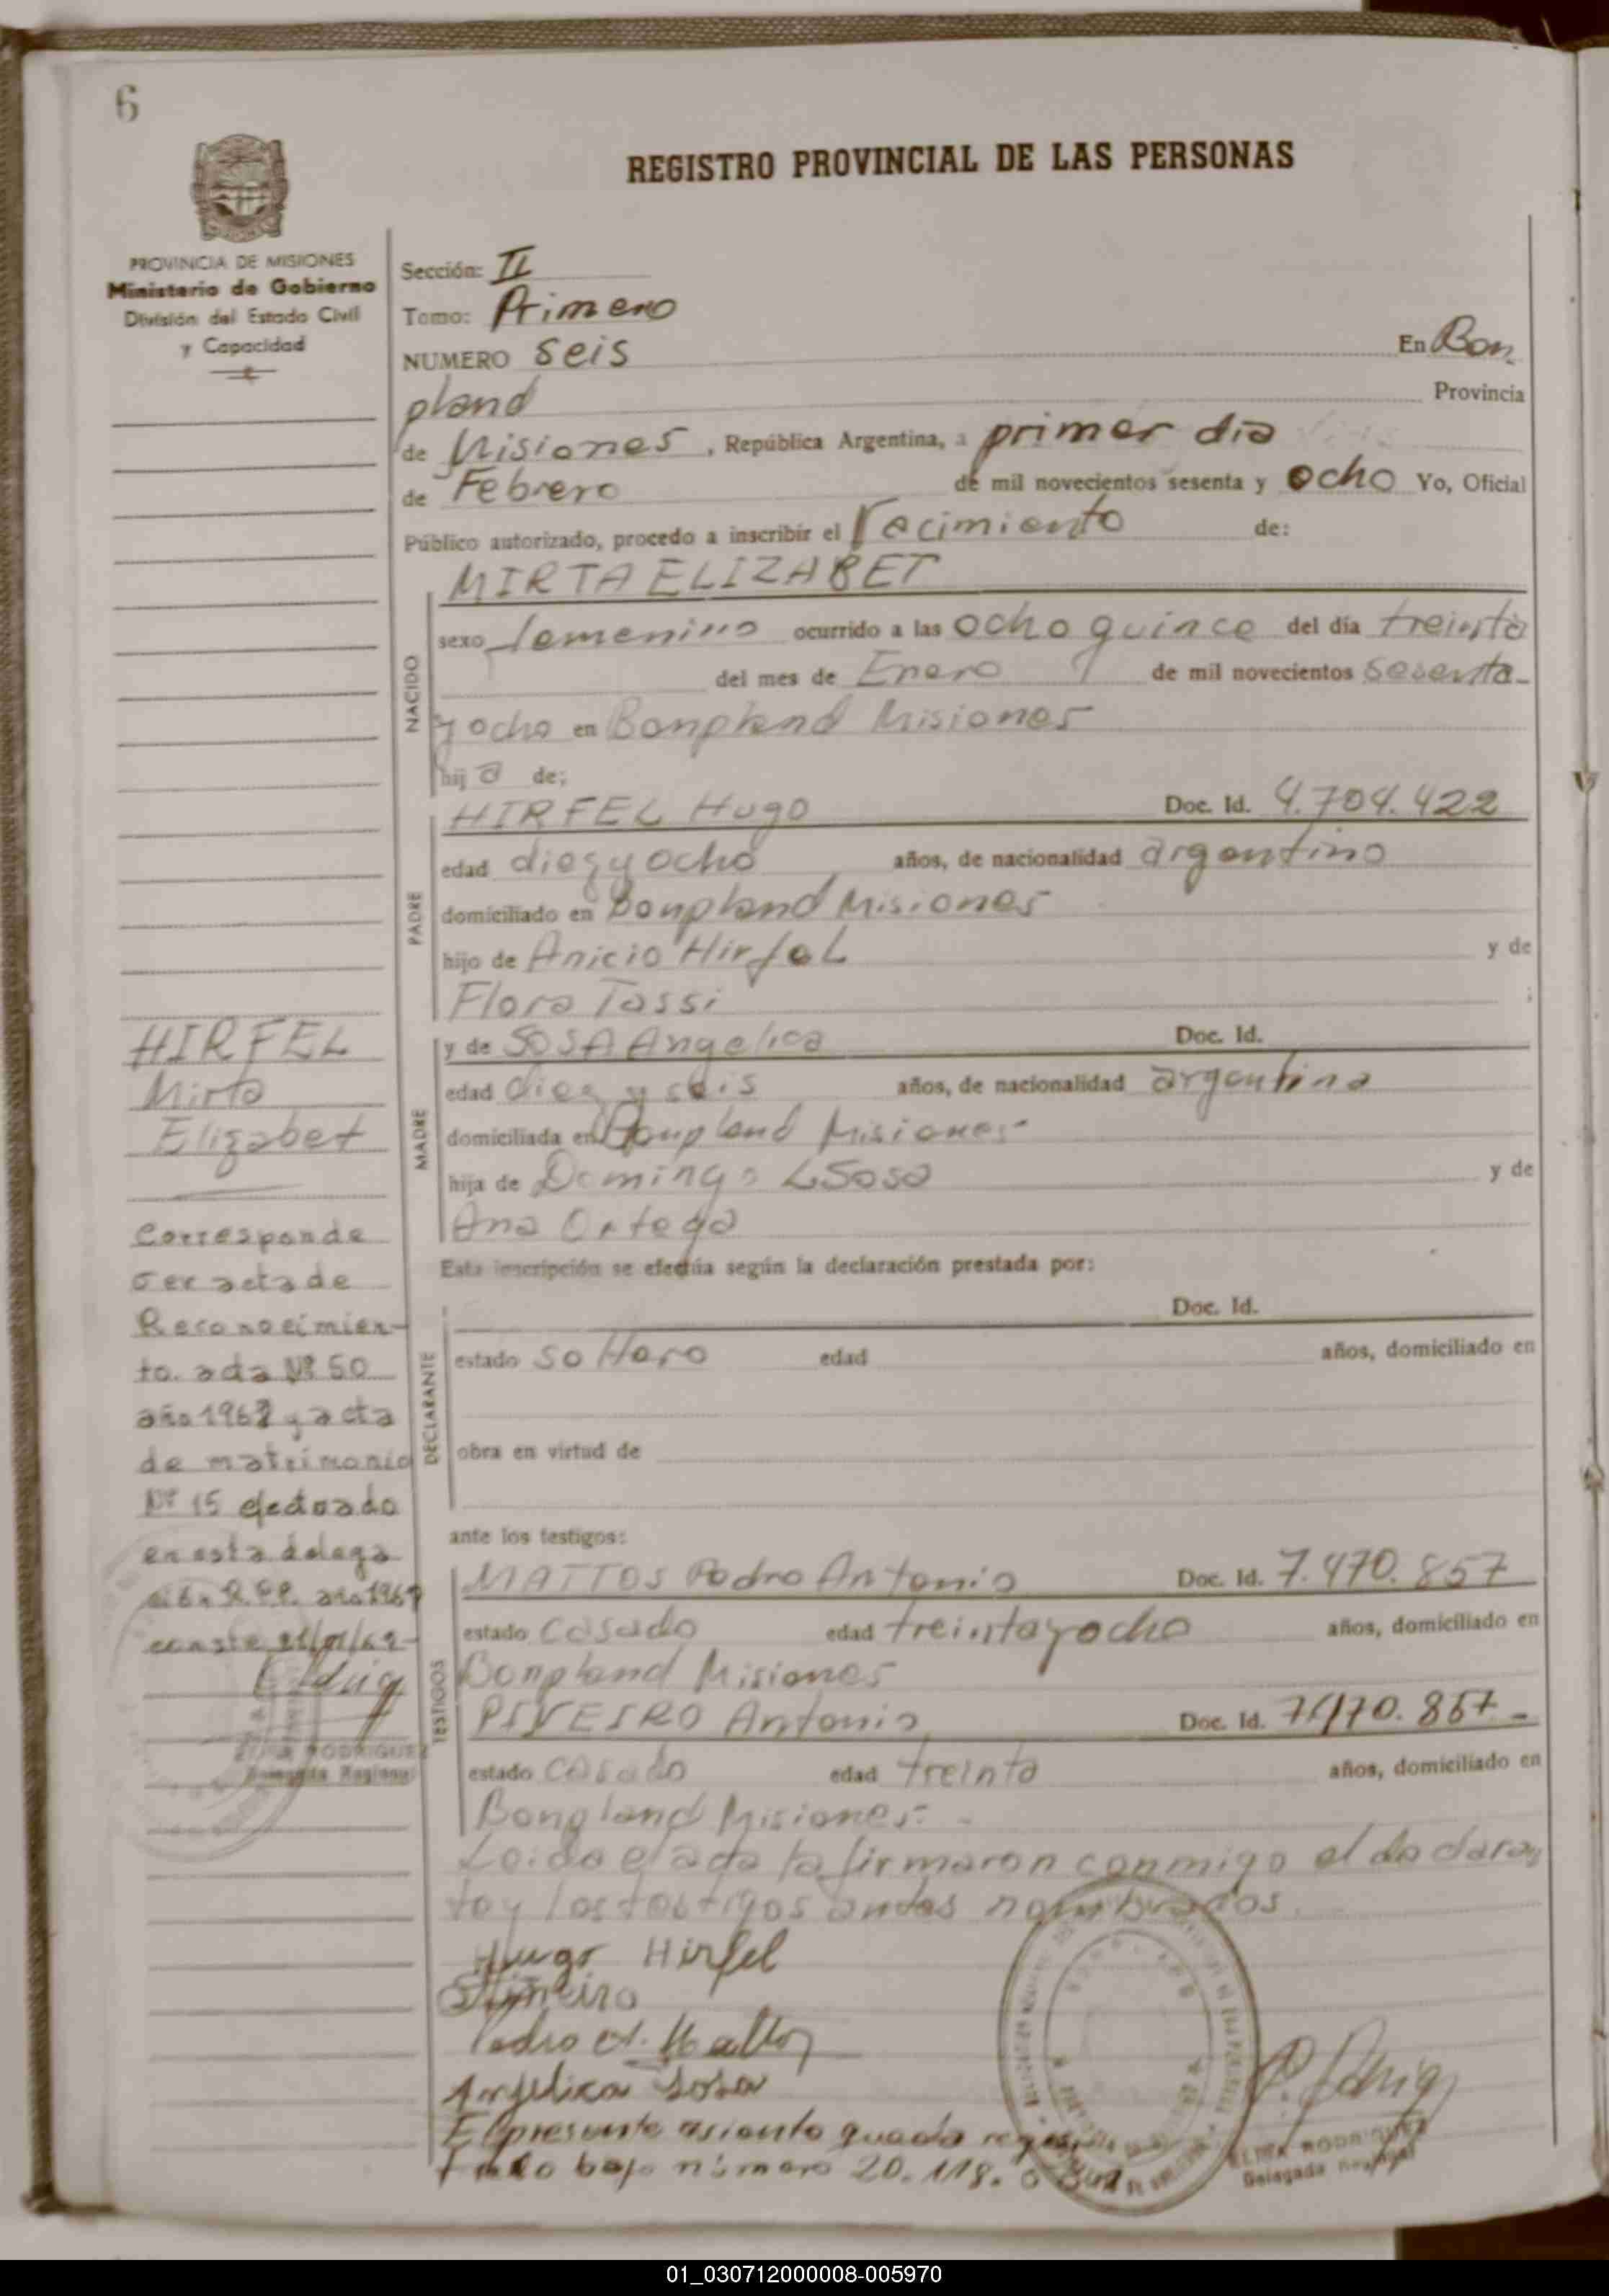 6
REGISTRO PROVINCIAL DE LAS PERSONAS
PROVINCIA DE MISIONES
Ministerio de Gobierno
División del Estado Civil
y Capacidad
Sección: II
Tomo: Primero
NUMERO seis En Bon
pland Provincia
de Misiones, República Argentina, a primer dia
de Febrero de mil novecientos sesenta y ocho Yo, Oficial
Público autorizado, procedo a inscribir el Nacimiento de:
NACIDO
MIRTA ELIZABET
sexo femenino ocurrido a las ocho quince del día treinta
del mes de Enero de mil novecientos sesenta-
y ocho en Bonpland Misiones
hija de;
PADRE
HIRFEL Hugo Doc. Id. 4.704.422
edad diez y ocho años, de nacionalidad argentino
domiciliado en Bonpland Misiones
hijo de Anicio Hirfel y de
Flora Tassi ;
MADRE
y de SOSA Angelica Doc. Id.
edad diez y seis años, de nacionalidad argentina
domiciliada en Bonpland Misiones
hija de Domingo Sosa y de
Ana Ortega
Esta inscripción se efectúa según la declaración prestada por:
DECLARANTE
Doc. Id.
estado soltero edad años, domiciliado en
obra en virtud de
ante los testigos:
TESTIGOS
MATTOS Pedro Antonio Doc. Id. 7.470.857
estado casado edad treinta y ocho años, domiciliado en
Bonpland Misiones
Antonio Doc. Id. 7.470.857-
estado casado edad treinta años, domiciliado en
Bonpland Misiones.-
Leida el acta la firmaron conmigo el declaran
te y los testigos antes nombrados.
Hugo Hirfel
Pedro A. Mattos
Angelica Sosa
El presente asiento queda regis
trado bajo número 20.118.
ELIDA RODRIGUEZ
Delegada Regional
HIRFEL
Mirta
Elizabet
Corresponde
ser acta de
Reconocimien-
to. acta Nº 50
año 1968 y acta
de matrimonio
Nº 15 efectuado
en esta delega
año 1969
conste
RODRIGUEZ
Delegada Regional
01_030712000008-005970